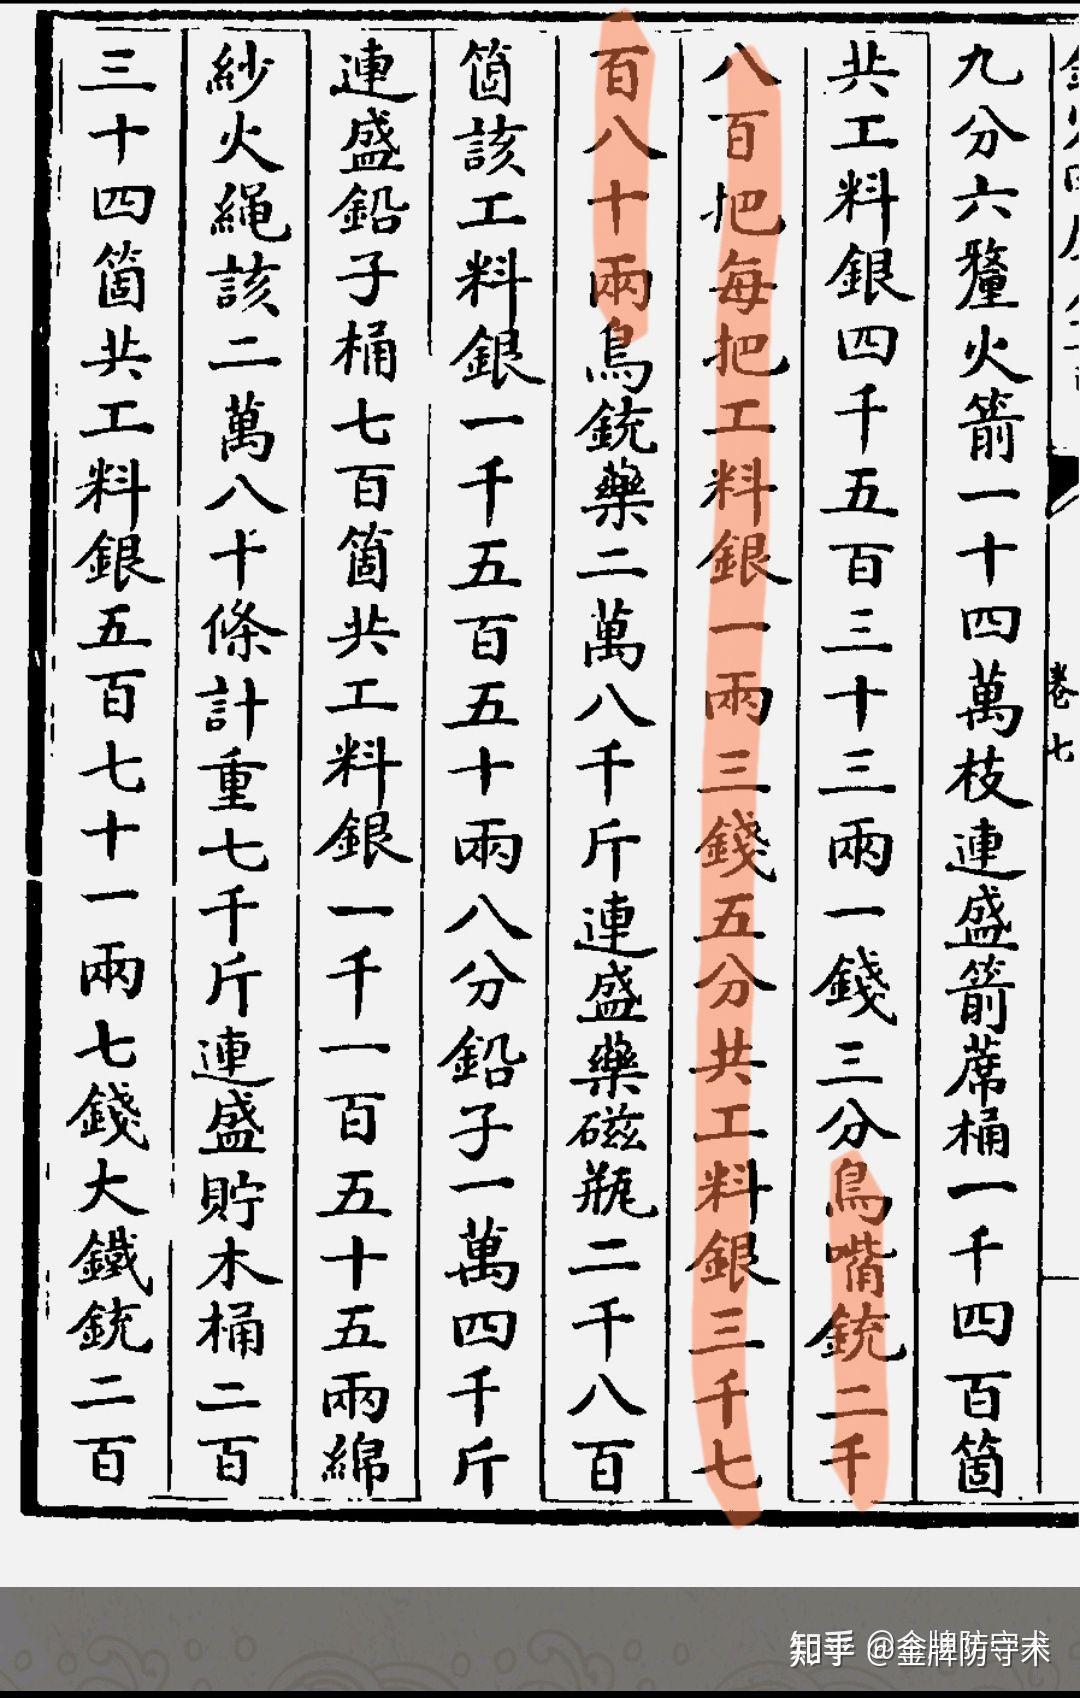 卷七
九分六釐火箭一十四萬枝連盛箭蓆桶一千四百箇
共工料銀四千五百三十三兩一錢三分鳥嘴銃二千
八百把每把工料銀一兩三錢五分共工料銀三千七
百八十兩鳥銃藥二萬八千斤連盛藥磁瓶二千八百
箇該工料銀一千五百五十兩八分鉛子一萬四千斤
連盛鉛子桶七百箇共工料銀一千一百五十五兩綿
紗火繩該二萬八十條計重七千斤連盛貯木桶二百
三十四箇共工料銀五百七十一兩七錢大鐵銃二百
知乎 @金牌防守术